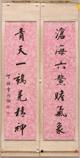 滄海六鰲瞻氣象
青天一鶴見精神